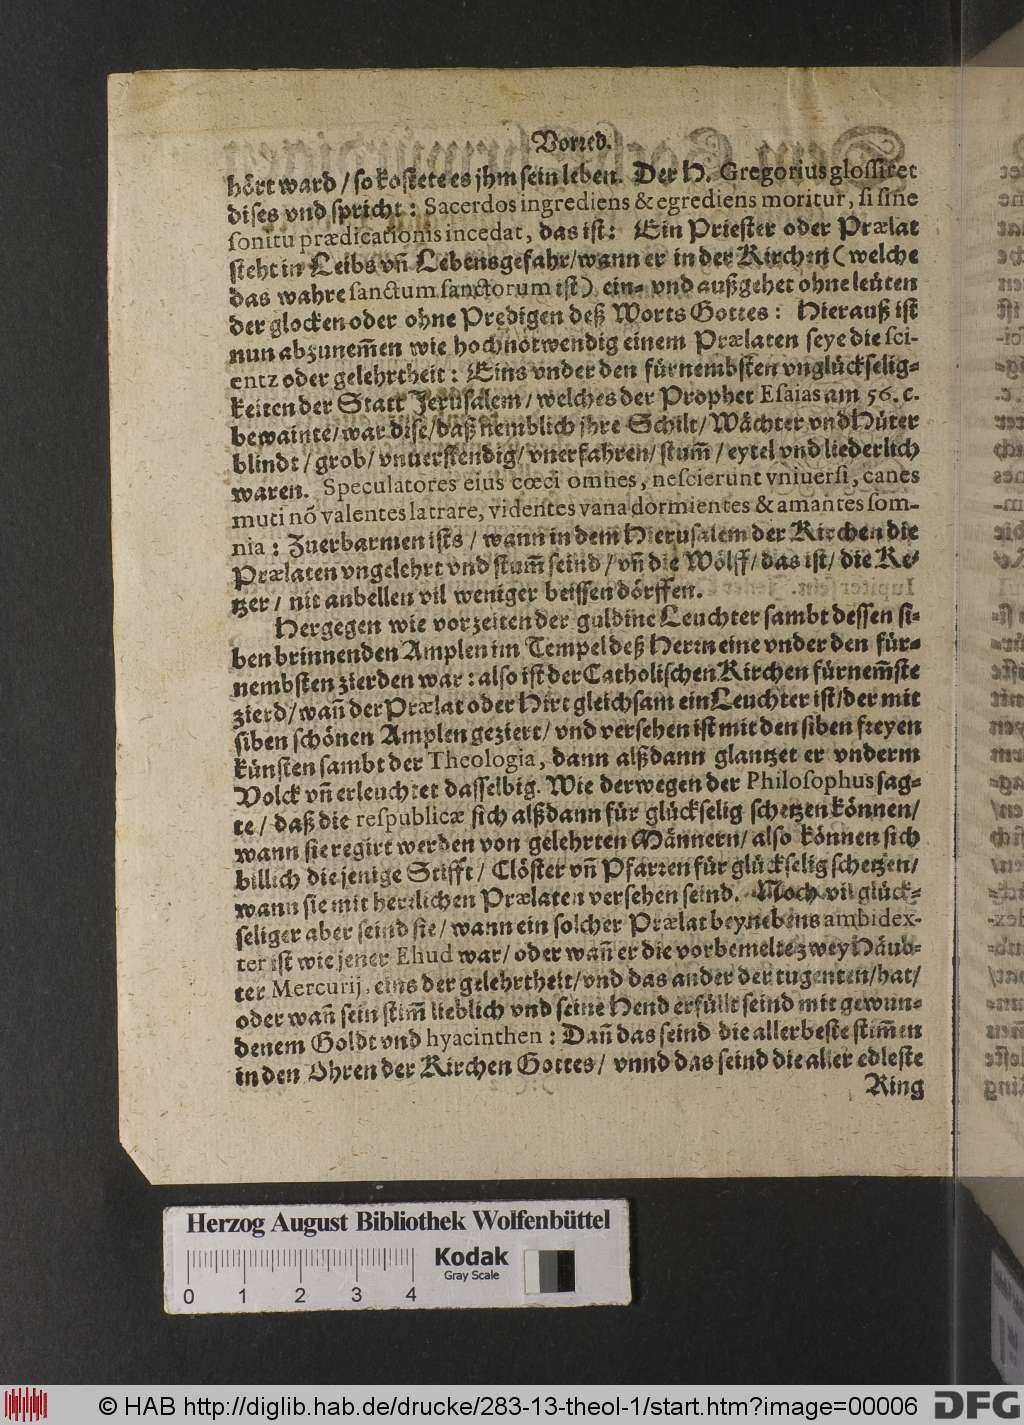 Vorred.
hört ward / so kostete es jhm sein leben. Der H. Gregorius glossiret
dises vnd spricht: Sacerdos ingrediens & egrediens moritur, si sine
sonitu prædicationis incedat, das ist: Ein Priester oder Prælat
steht in Leibs vñ Lebensgefahr/wann er in der Kirchen (welche
das wahre sanctum sanctorum ist) ein- vnd außgehet ohne leüten
der glocken oder ohne Predigen deß Worts Gottes: Hierauß ist
nun abzunem̃en wie hochnotwendig einem Prælaten seye die sci-
entz oder gelehrtheit: Eins vnder den fürnembsten vnglückselig-
keiten der Statt Jerusalem/welches der Prophet Esaias am 56. c.
bewainte/war dise/daß nemblich jhre Schilt/Wächter vnd Hüter
blindt/grob/vnuerstendig/vnerfahren/stum̃/eytel vnd liederlich
waren. Speculatores eius cœci omnes, nescierunt vniuersi, canes
muti nõ valentes latrare, videntes vana dormientes & amantes som-
nia: Zuerbarmen ists / wann in dem Hierusalem der Kirchen die
Prælaten vngelehrt vnd stum̃ seind / vñ die Wölff/das ist/die Ke-
tzer / nit anbellen vil weniger beissen dörffen.
Hergegen wie vorzeiten der guldine Leuchter sambt dessen si-
ben brinnenden Amplen im Tempel deß Herrn eine vnder den für-
nembsten zierden war: also ist der Catholischen Kirchen fürnem̃ste
zierd/wañ der Prælat oder Hirt gleichsam ein Leuchter ist/der mit
siben schönen Amplen geziert/vnd versehen ist mit den siben freyen
künsten sambt der Theologia, dann alßdann glantzet er vnderm
Volck vñ erleuchtet dasselbig. Wie derwegen der Philosophus sag-
te/daß die respublicæ sich alßdann für glückselig schetzen können/
wann sie regirt werden von gelehrten Männern/also können sich
billich diejenige Stifft / Clöster vñ Pfarren für glückselig schetzen/
wann sie mit herrlichen Prælaten versehen seind. Noch vil glück-
seliger aber seind sie/wann ein solcher Prælat beynebens ambidex-
ter ist wie jener Ehud war/oder wañ er die vorbemelte zwey Häub-
ter Mercurij, eins der gelehrtheit/vnd das ander der tugenten/hat/
oder wañ sein stim̃ lieblich vnd seine Hend erfüllt seind mit gewun-
denem Goldt vnd hyacinthen: Dañ das seind die allerbeste stim̃en
in den Ohren der Kirchen Gottes/ vnnd das seind die aller edleste
Ring
Herzog August Bibliothek Wolfenbüttel
Kodak
Gray Scale
0 1 2 3 4
© HAB http://diglib.hab.de/drucke/283-13-theol-1/start.htm?image=00006
DFG